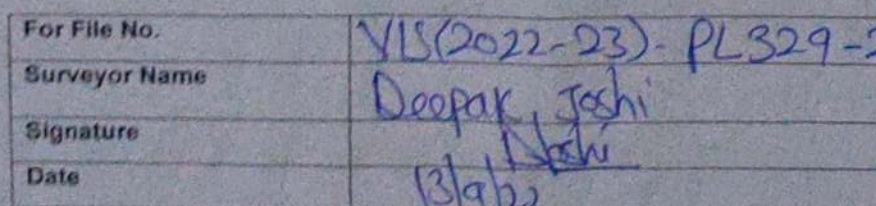 For File No. VIS(2022-23)- PL329-2
Surveyor Name Deepak, Joshi
Signature Joshi
Date 13/9/22